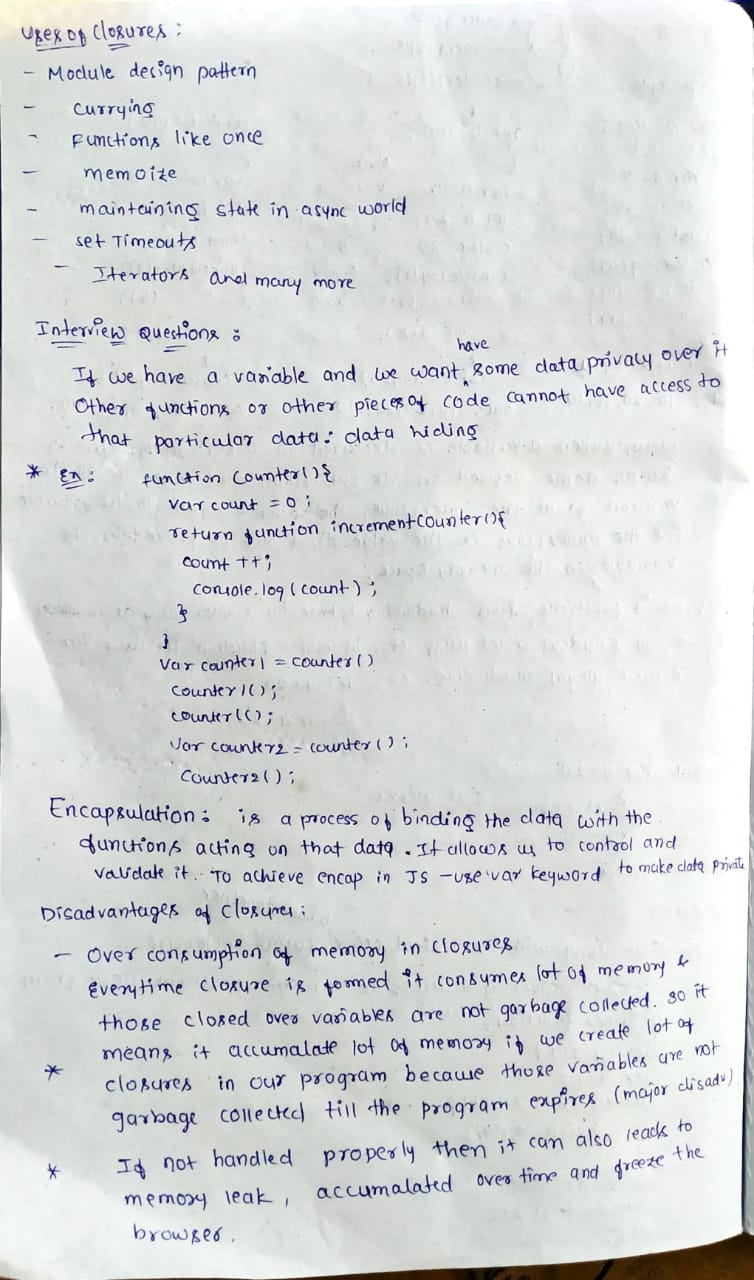 Uses of Closures :
- Module design pattern
- Currying
- Functions like once
- memoize
- maintaining state in async world
- set Timeouts
- Iterators and many more
Interview Questions :
have
If we have a variable and we want some data privacy over it
Other functions or other pieces of code cannot have access to
that particular data : data hiding
* Ex : function Counter(){
var count = 0 ;
return function incrementCounter(){
count ++;
console.log (count) ;
}
}
Var counter1 = counter()
Counter1();
counter1();
Var counter2 = counter() ;
Counter2();
Encapsulation : is a process of binding the data with the
functions acting on that data . It allows us to control and
validate it. To achieve encap in JS - use 'var keyword to make data private
Disadvantages of closures :
- Over consumption of memory in closures
Everytime closure is formed it consumes lot of memory &
those closed over variables are not garbage collected. so it
means it accumalate lot of memory if we create lot of
* closures in our program because those variables are not
garbage collected till the program expires (major disadv)
* If not handled properly then it can also leads to
memory leak , accumalated over time and freeze the
browser.